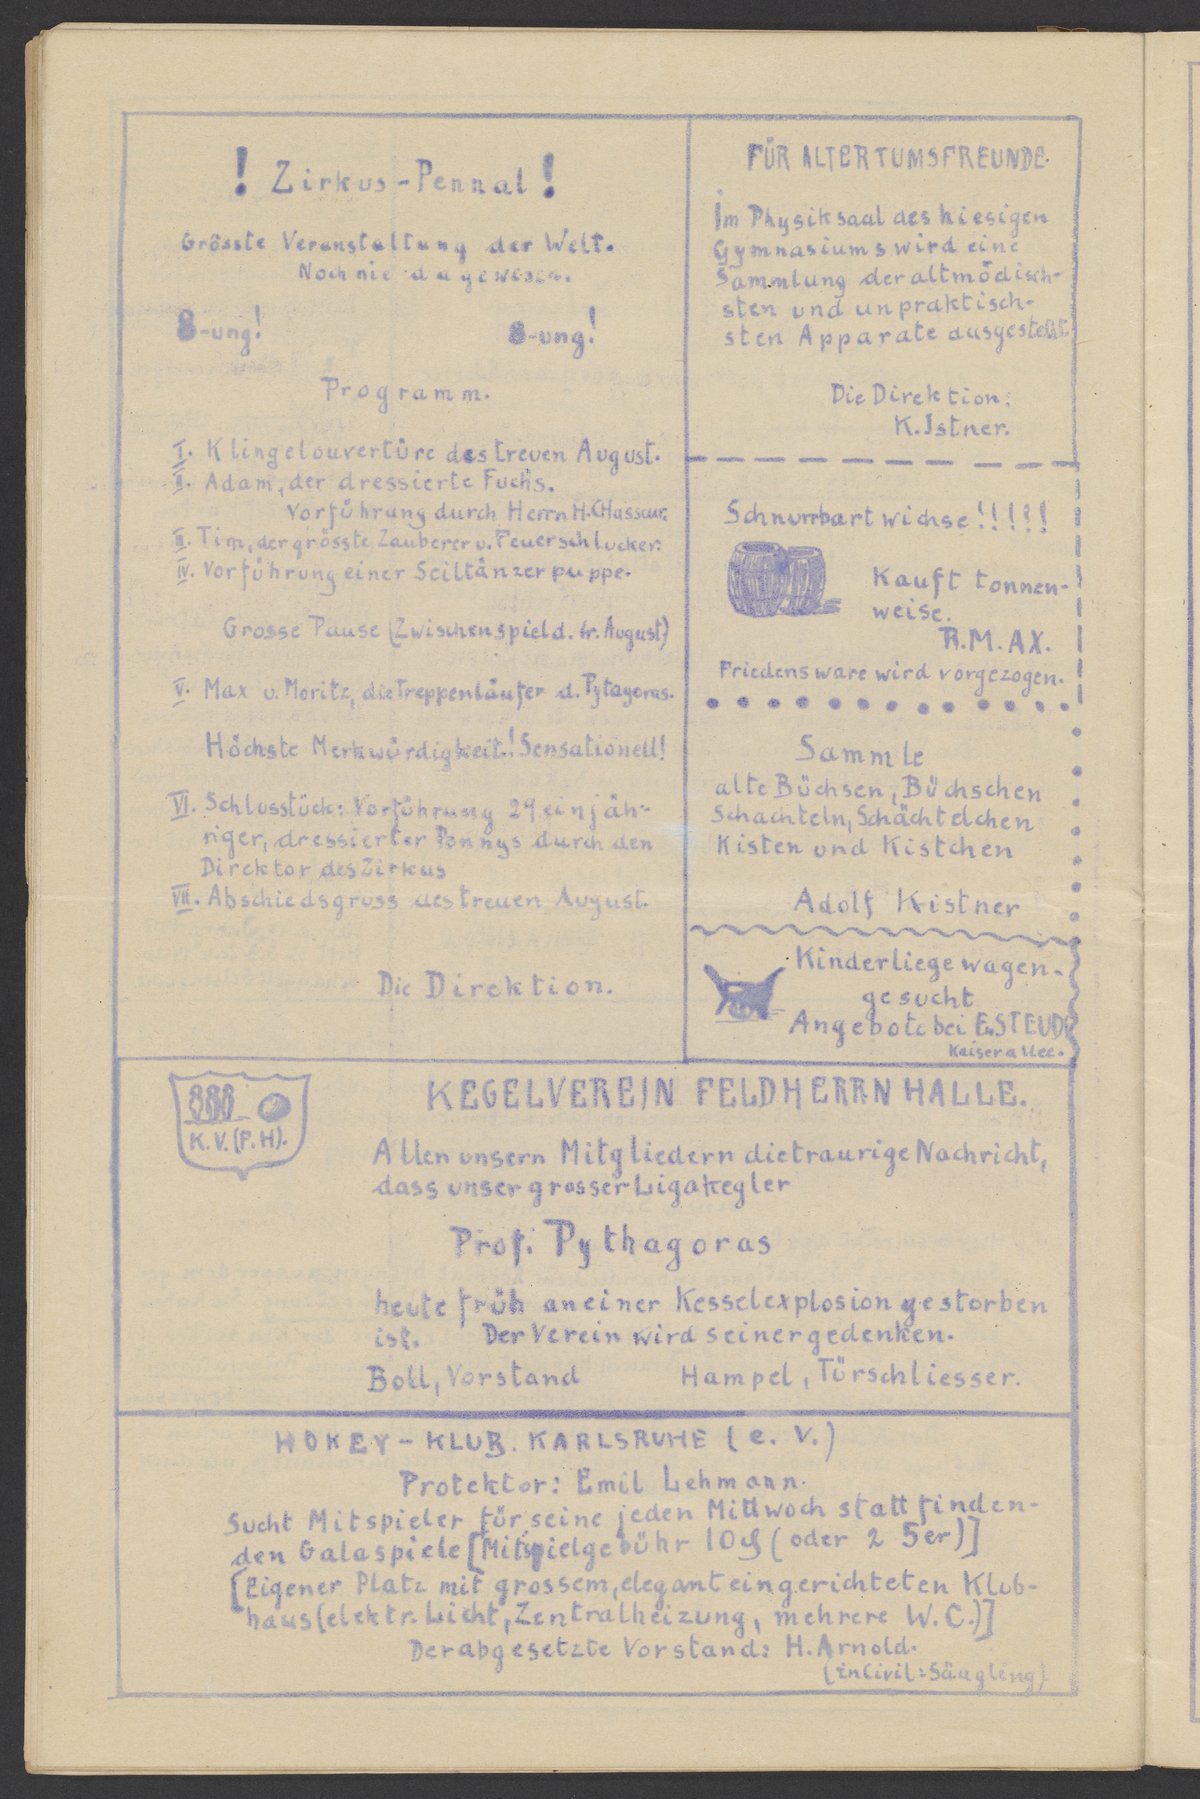 ! Zirkus-Pennal !
Grösste Veranstaltung der Welt.
Noch nie dagewesen.
8-ung! 8-ung!
Programm.
I. Klingelouvertüre des treuen August.
II. Adam, der dressierte Fuchs.
Vorführung durch Herrn H. CHasseur.
III. Tim, der grösste Zauberer u. Feuerschlucker.
IV. Vorführung einer Seiltänzerpuppe.
Grosse Pause (Zwischenspiel d. tr. August)
V. Max u. Moritz, die Treppenläufer d. Pytagoras.
Höchste Merkwürdigkeit! Sensationell!
VI. Schlusstück: Vorführung 29 einjäh-
riger, dressierter Ponnys durch den
Direktor des Zirkus
VII. Abschiedsgruss des treuen August.
Die Direktion.
FÜR ALTERTUMSFREUNDE.
Im Physiksaal des hiesigen
Gymnasiums wird eine
Sammlung der altmödisch-
sten und unpraktisch-
sten Apparate ausgestellt.
Die Direktion:
K. Istner.
Schnurrbartwichse!!!!!
Kauft tonnen-
weise.
R.M.AX.
Friedensware wird vorgezogen.
Sammle
alte Büchsen, Büchschen
Schachteln, Schächtelchen
Kisten und Kistchen
Adolf Kistner
Kinderliegewagen.
gesucht
Angebote bei E. STEUD
Kaiserallee.
K.V.(F.H).
KEGELVEREIN FELDHERRNHALLE.
Allen unsern Mitgliedern die traurige Nachricht,
dass unser grosser Ligakegler
Prof. Pythagoras
heute früh an einer Kesselexplosion gestorben
ist. Der Verein wird seiner gedenken.
Boll, Vorstand Hampel, Türschliesser.
HOKEY-KLUB. KARLSRUHE (e. V.)
Protektor: Emil Lehmann.
Sucht Mitspieler für seine jeden Mittwoch stattfinden-
den Galaspiele [Mitspielgebühr 10 ₰ (oder 2 5er)]
[Eigener Platz mit grossem, elegant eingerichteten Klub-
haus (elektr. Licht, Zentralheizung, mehrere W.C.)]
Der abgesetzte Vorstand: H. Arnold.
(in Civil: Säugling)